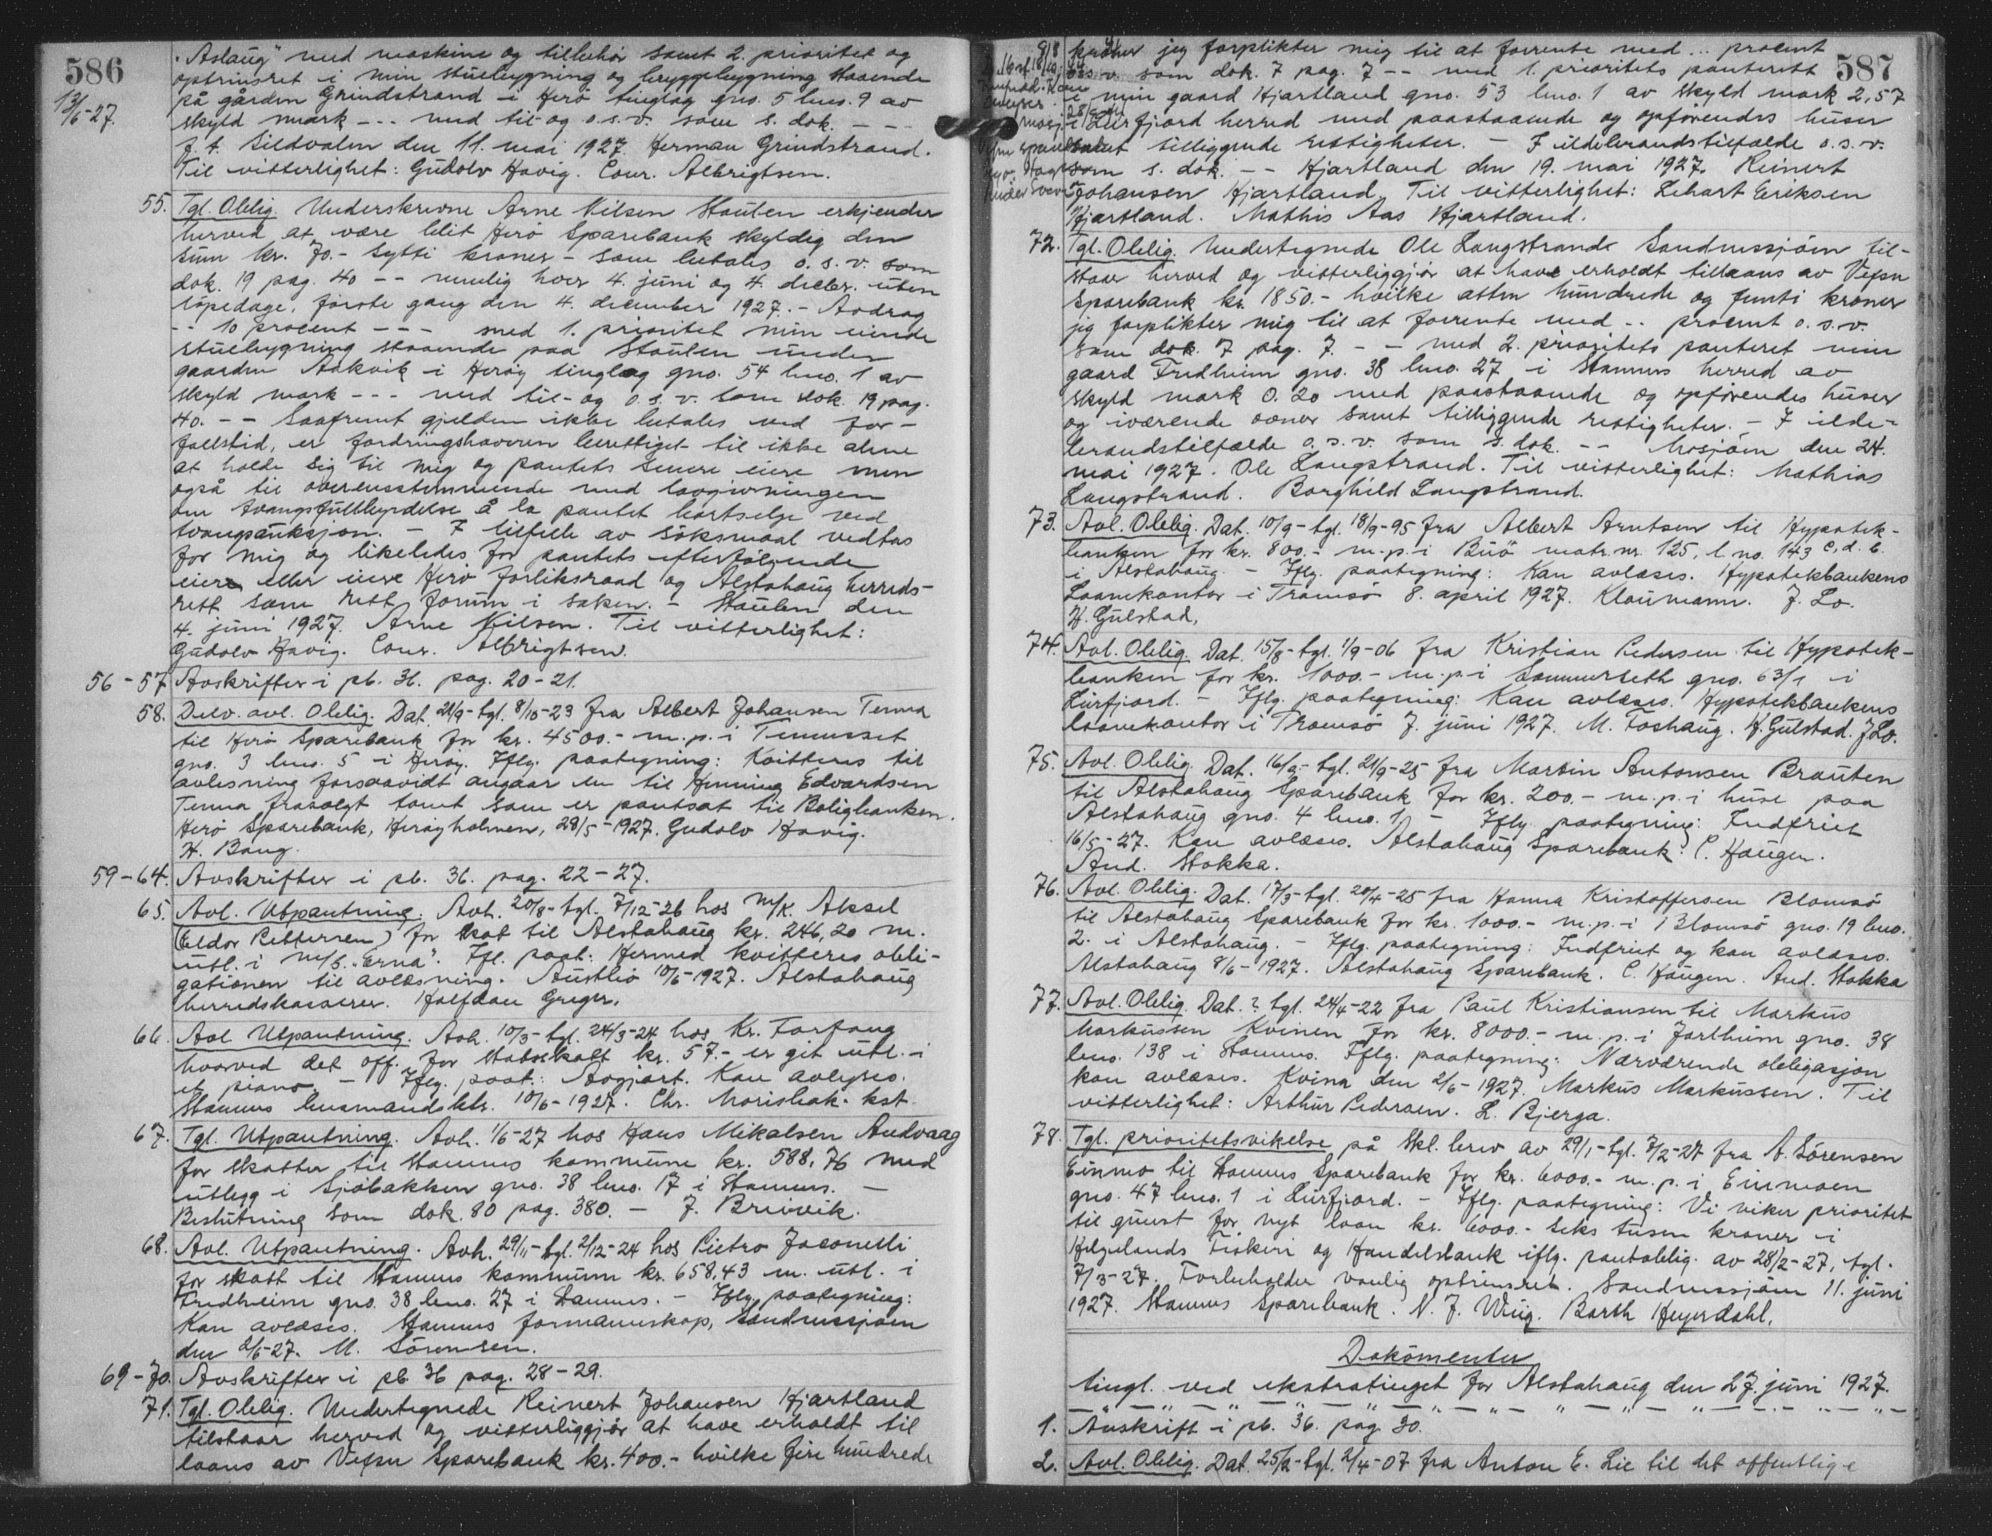 586
13/6-27.
"Aslaug" med maskine og tilbehør samt 2. prioritet og
optrinsret i min stuebygning og bryggebygning staaende
på gården Grindstrand i Herö tinglag gno. 5 bno. 9 av
skyld mark --- med til- og o.s.v. som s. dok. ---
f.t. Sildvalen den 11. mai 1927. Herman Grindstrand.
Til vitterlighet: Gudolv Havig. Conr. Albrigtsen.
55. Tgl. Oblig. Underskrevne Arne Nilsen Staulen erkjender
herved at være blit Herö Sparebank skyldig den
sum kr. 70.- sytti kroner - som betales o.s.v. som
dok. 19 pag. 40 -- nemlig hver 4. juni og 4. decbr. uten
löpedage, første gang den 4. december 1927. - Avdrag
-- 10 procent --- med 1. prioritet min eiende
stuebygning staaende paa Staulen under
gaarden Aakvik i Heröy tinglag gno. 54 bno. 1 av
skyld mark --- med til- og o.s.v. som dok. 19 pag.
40. -- Saafremt gjelden ikke betales ved for-
fallstid, er fordringshaveren berettiget til ikke alene
at holde sig til mig og pantets senere eiere men
også til overensstemmende med lovgivningen
om tvangsfullbyrdelse å la pantet bortselge ved
tvangsauksjon. - I tilfelle av söksmaal vedtas
for mig og likeledes for pantets efterfølgende
eiere eller eiere Herö forliksraad og Alstahaug herreds-
rett som rett forum i saken. - Staulen den
4. juni 1927. Arne Nilsen. Til vitterlighet:
Gudolv Havig. Conr. Albrigtsen.
56-57 Avskrifter i pb. 36. pag. 20-21.
58. Delv. avl. Oblig. Dat. 21/9- tgl. 8/10-23 fra Albert Johansen Tenna
til Herö Sparebank for kr. 4500.- m.p. i Tennesset
gno. 3 bno. 5 i Heröy. Iflg. paategning: Kvitteres til
avlesning forsaavidt angaar en til Henning Edvardsen
Tenna frasolgt tomt som er pantsat til Boligbanken.
Herö Sparebank, Heröyholmen, 28/5-1927. Gudolv Havig.
H. Bang.
59-64. Avskrifter i pb. 36. pag. 22-27.
65. Avl. Utpantning. Avh. 20/8- tgl. 7/12-26 hos m/k. Aksel
(Eldor Pettersen) for skat til Alstahaug kr. 246,20 m.
utl. i m/s. "Erna". Ifl. paat.: Hermed kvitteres obli-
gationen til avlæsning. Austbö 10/6-1927. Alstahaug
herredskasserer. Halfdan Greger.
66. Avl. Utpantning. Avh. 10/3- tgl. 24/3-24 hos Kr. Forfang
hvorved det off. for statsskatt kr. 57.- er git utl. i
et piano. - Iflg. paat.: Avgjort. Kan avlyses.
Stamnes lensmandsktr. 10/6-1927. Chr. Morisbak. kst.
67. Tgl. Utpantning. Avh. 1/6-27 hos Hans Mikalsen Andvaag
for skatter til Stamnes kommune kr. 588,76 med
utlegg i Sjöbakken gno. 38 bno. 17 i Stamnes. -
Beslutning som dok. 80 pag. 380. - J. Brevik.
68. Avl. Utpantning. Avh. 29/11- tgl. 2/12-24 hos Pietro Jaconelli
for skatt til Stamnes kommune kr. 658,43 m. utl. i
Fredheim gno. 38 bno. 27 i Stamnes. - Iflg. paategning:
Kan avlæses. Stamnes formannskap, Sandnessjøen
den 2/6-27. M. Sörensen.
69-70. Avskrifter i pb 36 pag. 28-29.
71. Tgl. Oblig. Undertegnede Reinert Johansen Hjartland
tilstaar herved og vitterliggjör at have erholdt til
laans av Vefsn Sparebank kr. 400.- hvilke fire hundrede
587
kroner jeg forplikter mig til at forrente med .. procent
o.s.v. som dok. 7 pag. 7 -- med 1. prioritets panterett
i min gaard Hjartland gno. 53 bno. 1 av skyld mark 2,57
i Leirfjord herred med paastaaende og opførendes huser
samt tilliggende rettigheter. - I ildebrandstilfælde o.s.v.
som s. dok. -- Hjartland den 19. mai 1927. Reinert
Johansen Hjartland. Til vitterlighet: Lehart Eriksen
Hjartland. Mathis Aas Hjartland.
72. Tgl. Oblig. Undertegnede Ole Langstrand Sandnessjøen til-
staar herved og vitterliggjör at have erholdt tillaans av Vefsn
Sparebank kr. 1850.- hvilke atten hundrede og femti kroner
jeg forplikter mig til at forrente med .. procent o.s.v.
som dok. 7 pag. 7. -- med 2. prioritets panteret min
gaard Fredheim gno. 38 bno. 27 i Stamnes herred av
skyld mark 0.20 med paastaaende og opførendes huser
og iværende ovner samt tilliggende rettigheter. - I ilde-
brandstilfælde o.s.v. som s. dok. -- Mosjøen den 24.
mai 1927. Ole Langstrand. Til vitterlighet: Mathias
Langstrand. Borghild Langstrand.
73. Avl. Oblig. Dat. 10/9- tgl. 18/9-95 fra Albert Arntsen til Hypotek-
banken for kr. 800.- m.p. i Buö matr. nr. 125, l.no. 143 c,d.
i Alstahaug. - Iflg. paategning: Kan avlæses. Hypotekbankens
Laanekontor i Tromsö 8. april 1927. Klaumann. J. Lo.
H. Gulstad.
74. Avl. Oblig. Dat. 15/8- tgl. 1/9-06 fra Kristian Pedersen til Hypotek-
banken for kr. 1000.- m.p. i Sommerseth gno. 63/1 i
Leirfjord. - Iflg. paategning: Kan avlæses. Hypotekbankens
laanekontor i Tromsö 7. juni 1927. M. Foshaug. H. Gulstad. J.Lo.
75. Avl. Oblig. Dat. 16/9- tgl. 21/9-25 fra Martin Antonsen Brauten
til Alstahaug Sparebank for kr. 200.- m.p. i huse paa
Alstahaug gno. 4 bno. 1 - Iflg. paategning: Indfriet
16/5-27. Kan avlæses. Alstahaug Sparebank: C. Haugen.
And. Stokka.
76. Avl. Oblig. Dat. 17/3- tgl. 20/4-25 fra Hanna Kristoffersen Blomsö
til Alstahaug Sparebank for kr. 1000.- m.p. i Blomsö gno. 19 bno.
2. i Alstahaug. - Iflg. paategning: Indfriet og kan avlæses.
Alstahaug 8/6-1927. Alstahaug Sparebank. C. Haugen. And. Stokka
77. Avl. Oblig. Dat. ? tgl. 24/4-22 fra Paul Kristiansen til Markus
Markussen Kvinen for kr. 8000.- m.p. i Jarlheim gno. 38
bno. 138 i Stamnes. Iflg. paategning: Nærværende obligasjon
kan avlæses. Kvina den 2/6-1927. Markus Markussen. Til
vitterlighet: Arthur Pedersen. L. Bjerga.
78. Tgl. prioritetsvikelse på skl. brev av 29/1- tgl. 7/2-27 fra A. Sörensen
Einmo til Stamnes Sparebank for kr. 6000.- m.p. i Einmoen
gno. 47 bno. 1 i Leirfjord. - Iflg. paategning: Vi viker prioritet
til gunst for nyt laan kr. 6000.- seks tusen kroner i
Helgelands Fiskeri og Handelsbank iflg. pantoblig. av 28/2-27, tgl.
7/3-27. Forbeholder vanlig optrinsret. Sandnessjøen 11. juni
1927. Stamnes Sparebank. N. J. Wiig. Barth Heyerdahl.
Dokumenter
tingl. ved ekstratinget for Alstahaug den 27. juni 1927.
1. Avskrift i pb. 36. pag. 30.
2. Avl. Oblig. Dat. 25/2- tgl. 2/4-07 fra Anton E. Lie til det offentlige